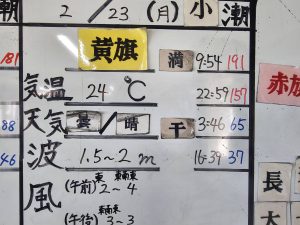 潮 2 / 23 (月) 小潮
黄旗 満 9:54 191
181
気温 24 ℃ 22:59 157
天気 曇/晴 干 3:46 65
88
波 1.5～2 m 16:39 37
46
風 (午前) 東 2～4 東南東
(午後) 東南東 3～3
赤旗
長
大